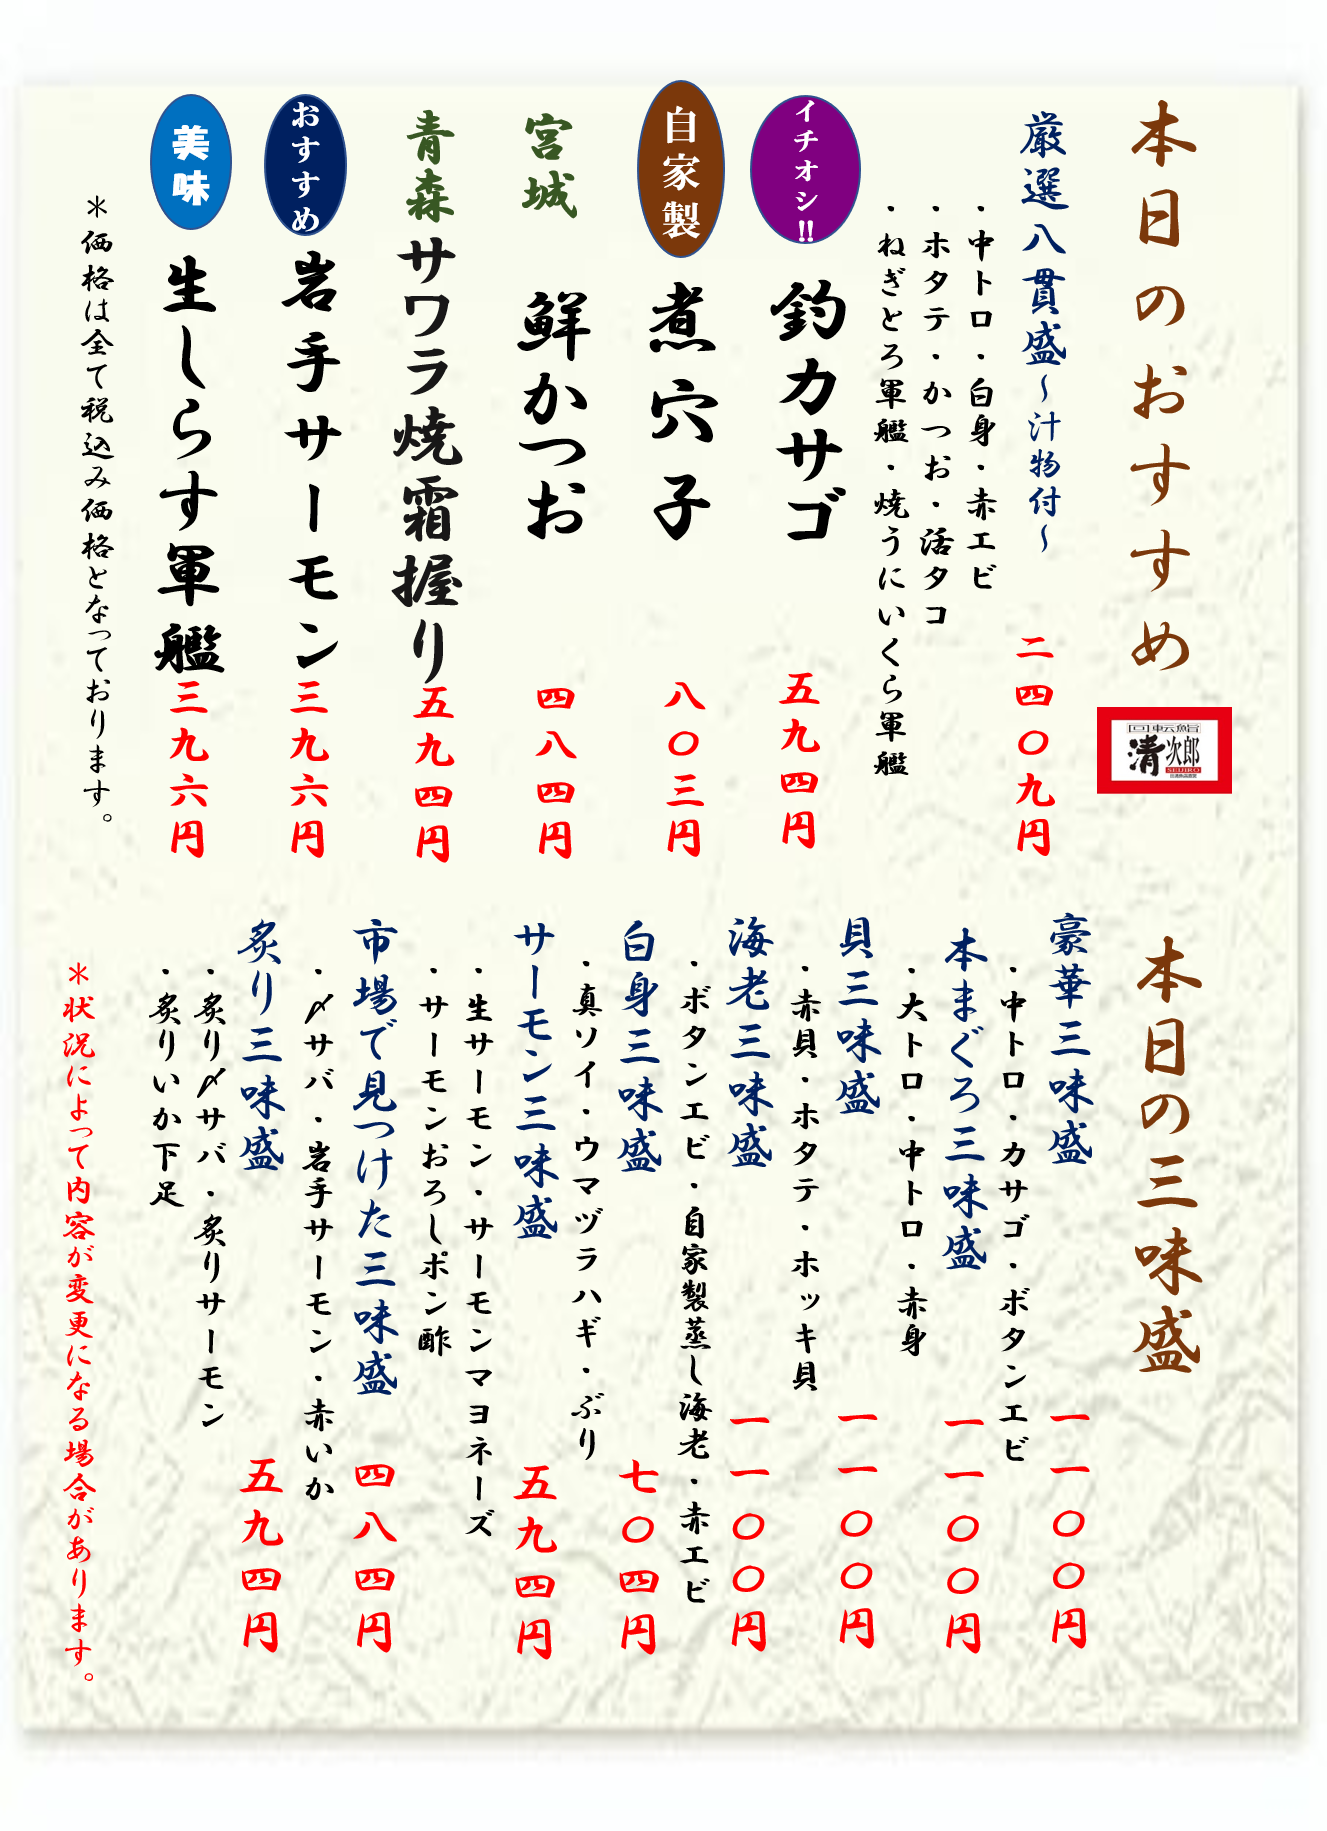 本日のおすすめ
厳選八貫盛~汁物付~
二四〇九円
・中トロ・白身・赤エビ
・ホタテ・かつお・活タコ
・ねぎとろ軍艦・焼うにいくら軍艦
イチオシ!!
釣カサゴ
五九四円
自家製
煮穴子
八〇三円
宮城
鮮かつお
四八四円
青森
サワラ焼霜握り
五九四円
おすすめ
岩手サーモン
三九六円
美味
生しらす軍艦
三九六円
*価格は全て税込み価格となっております。
清次郎
SEIJIRO
本日の三味盛
豪華三味盛
一一〇〇円
・中トロ・カサゴ・ボタンエビ
本まぐろ三味盛
一一〇〇円
・大トロ・中トロ・赤身
貝三味盛
一一〇〇円
・赤貝・ホタテ・ホッキ貝
海老三味盛
一一〇〇円
・ボタンエビ・自家製蒸し海老・赤エビ
白身三味盛
七〇四円
・真ソイ・ウマヅラハギ・ぶり
サーモン三味盛
五九四円
・生サーモン・サーモンマヨネーズ
・サーモンおろしポン酢
市場で見つけた三味盛
四八四円
・〆サバ・岩手サーモン・赤いか
炙り三味盛
五九四円
・炙り〆サバ・炙りサーモン
・炙りいか下足
*状況によって内容が変更になる場合があります。